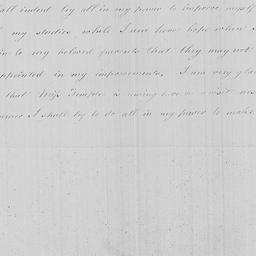 all indent by all in my power to improve myself
my studies while I am here hope when I
in to my beloved parents that they may not
appointed in my improvements. I am very glad
that Miss Temple is coming here on a visit nex
I shall try to do all in my power to make